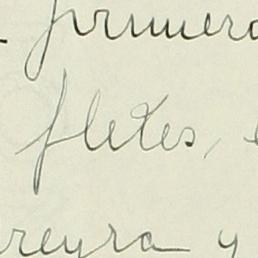 primera
fletes,
reyra y